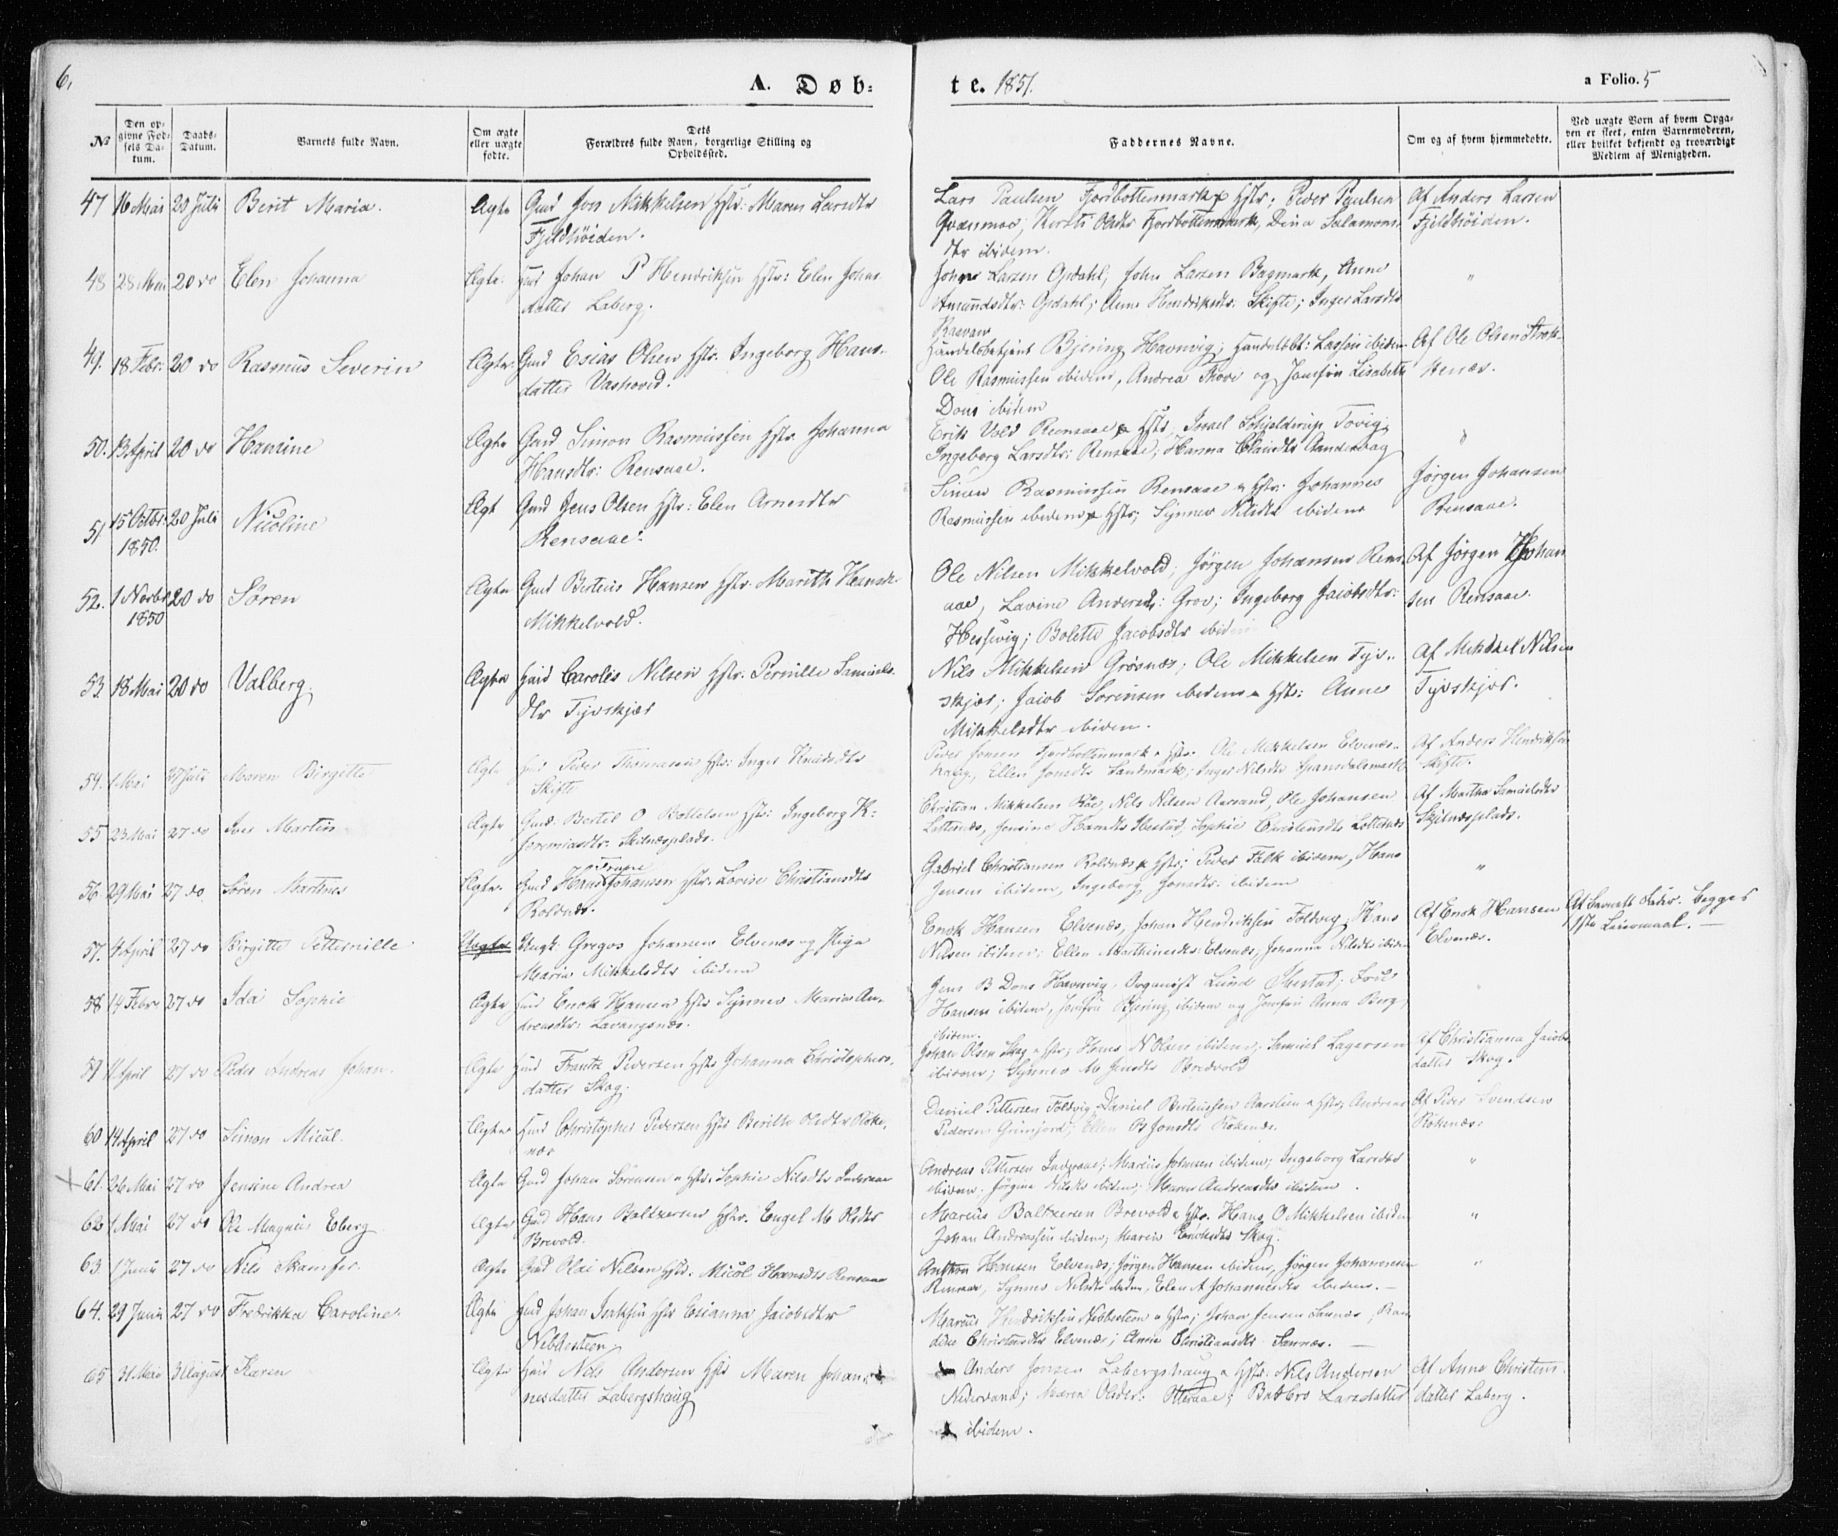 6.
A. Døb-
te. 1851.
a Folio. 5
No
Den op-
givne Fød-
sels Da-
tum.
Daabs-
Datum.
Barnets fulde Navn.
Om ægte
eller uægte
fødte.
Dets
Forældres fulde Navn, borgerlige Stilling og
Opholdssted.
Faddernes Navne.
Om og af hvem hjemmedøbte.
Ved uægte Born af hvem Opga-
ven er skeet, enten Barnemoderen,
eller hvilket bekjendt og troværdigt
Medlem af Menigheden.
47 16 Mai 20 Juli Berit Maria. Ægte Gmd Jon Mikkelsen Hstr: Maren Larsdtr
Fjeldhøiden.
Lars Paulsen Fjordbottenmark Hstr; Peder Paulsen
Olsdtr Fjordbottenmark, Dina Salamons-
dtr ibidem.
Af Anders Larsen
Fjeldhøiden.
48 28 Mai 20 do Elen Johanna Ægte Johan P Hendriksen Hstr: Elen Johns
datter Laberg.
Larsen Gjdahl; John Larsen Bagmark, Anne
Amundsdtr: Gjdahl; Anne Hendriksdtr: Skifte; Inger Larsdtr
"
49. 18 Febr: 20 do Rasmus Severin Ægte Gmd Esias Olsen Hstr. Ingeborg Hans-
datter Vashoved.
Handelsbetjent Bjering Havnvig; Handelsbt: Lassen ibidem
Ole Rasmussen ibidem, Andrea Thove og Jomfru Lisabeth
Dons ibidem
Af Ole Olsen
50. 13 April 20 do Hansine Ægte Gmd Simon Rasmussen Hstr. Johanna
Hansdtr: Rensaae.
Erik Vold Rensaae Hstr, Israel Schjelderup Tovig;
Ingeborg Larsdtr: Rensaae; Hanna
"
51 15 Octbr: 1850. 20 Juli Nicoline Ægt Gmd Jens Olsen Hstr: Elen Arnesdtr
Rensaae.
Simon Rasmussen Rensaae Hstr: Johannes
Rasmussen ibidem Hstr; Synnev Nilsdtr ibidem
Jørgen Johansen
Rensaae.
52. 1 Novbr 1850 20 do Søren Ægte Gmd Berteus Hansen Hstr. Marith
Mikkelvold.
Ole Nilsen Mikkelvold; Jørgen Johansen Rens-
aae, Lavine Andersdtr: Grov; Ingeborg Jacobsdtr:
Hessevig; Bolette Jacobsdtr ibidem
Af Jørgen Johan
sen Rensaae.
53. 18 Mai 20 do Valberg. Ægte Carolus Nilsen Hstr. Pernille Samuels-
dtr Tyvskjær
Nils Mikkelsen Grøsnæs; Ole Mikkelsen Tyv-
skjær; Jacob Sørensen ibidem Hstr: Anne
Mikkelsdtr ibidem.
Af Mikkel Nilsen
Tyvskjær.
54. 1 Mai 27 Juli Maren Birgitte Ægte Peder Thomasen Hstr: Inger Knudsdtr
Skifte
Peder Jonsen Fjordbottenmark Hstr. Ole Mikkelsen Elvenæs-
haug, Ellen Jonsdtr Sandmark; Inger Nilsdtr Spansdalsmark
Af Anders Hendriksen
Skifte.
55 23 Mai 27 do Iver Martin Ægte Gmd. Bertel O Bottelsen Hstr: Ingeborg K-
Jeremiasdtr:
Christian Mikkelsen Nils Nilsen Aarsand, Ole Johansen
Lottenæs, Jensine Hansdtr Ibestad, Sophie Christensdtr Lottenæs
Af Martha Samuelsdtr
56. 29 Mai 27 do Søren Martinus Ægte Gmd Hans Johansen Hstr. Lovise Christiansdtr
Roldnæs.
Gabriel Christiansen Roldnæs Hstr; Peder Falk ibidem, Hans
Jensen ibidem, Ingeborg Jonsdtr. ibidem
"
57. 4 April 27 do Birgitte Petternille Uægte Ungk. Gregos Johansen Elvenæs og Pige
Maria Mikkelsdtr ibidem
Enok Hansen Elvenæs, Johan Hendriksen Foldvig, Hans
Nilsen ibidem; Ellen Marthinesdtr: Elvenæs, Johanna Nilsdtr ibidem
Af Enok Hansen
Elvenæs.
Af Barnets Fader. Begges
1ste Leiermaal.
58 14 Febr 27 do Ida Sophie Ægte Enok Hansen Hstr Synnev Maria An-
dreasdtr: Lavangsnæs.
Jens B Dons Havnvig. Organist Lund Ibestad;
Hansen ibidem, Jomfru Bjering ibidem og Jomfru Anna Berg,
ibidem.
59 11 April 27 do Peder Andreas Johan. Ægte Frantz Pedersen Hstr Johanna Christophers-
datter Skog.
Johan Olsen Skog Hstr; Hans N Olsen ibidem; Samuel Lagersen
ibidem; Synnev M Jensdtr Bredvold
Af Christianna Jacobs
datter Skog.
60 14 April 27 do Simon Mical. Ægte Christopher Pedersen Hstr Berith Olsdtr Røke-
næs
Daniel Pettersen Foldvig, Daniel Berteussen Hstr; Andreas
Pedersen Grimsjord; Ellen B Jonsdtr Røkenæs.
Af Peder Svendsen
Røkenæs.
61. 26 Mai 27 do Jensine Andrea Ægte Gmd Johan Sørensen Hstr. Sophie Nilsdtr Inderaae
Andreas Pettersen Inderaae; Marius Johnsen ibidem; Ingeborg Larsdtr
ibidem. Jørgine Nilsdtr ibidem; Maren Andreasdtr ibidem.
"
62 1 Mai 27 do Ole Magnus Eberg. Ægte Gmd Hans Baltzersen Hstr. Engel M Olsdtr
Brevold.
Marcus Baltzersen Brevold Hstr. Hans O Mikkelsen ibidem
Johan Andreassen ibidem; Maren Enoksdtr Skog.
"
63 1 Juni 27 do Nils Skamfer. Ægte Gmd Olai Nilsen Hstr. Micol Hansdtr Rensaae
Anthon Hansen Elvenæs; Jørgen Hansen ibidem, Jørgen Johannesen
Rensaae, Synnev Nilsdtr ibidem, Elen A Johannesdtr ibidem.
"
64. 29 Juni 27 do Fredrikka Caroline. Ægte Gmd Johan Isaksen Hstr Esianna Jacobsdtr
Nibbesteen
Marcus Hendriksen Nibbesteen Hstr; Johan Jensen Sannæs,
Christensdtr Elvenæs; Anne Christiansdtr Sannæs.
65 31 Mai 3 August Karen Ægte Nils Andersen Hstr Maren Johan-
nesdatter Labergshaug
Anders Jonsen Labergshaug Hstr. Nils Andersen
Nedervand; Maren Olsdtr: Otteraae; Barbro Larsdatter
ibidem.
Af Anne Christens-
datter Laberg.